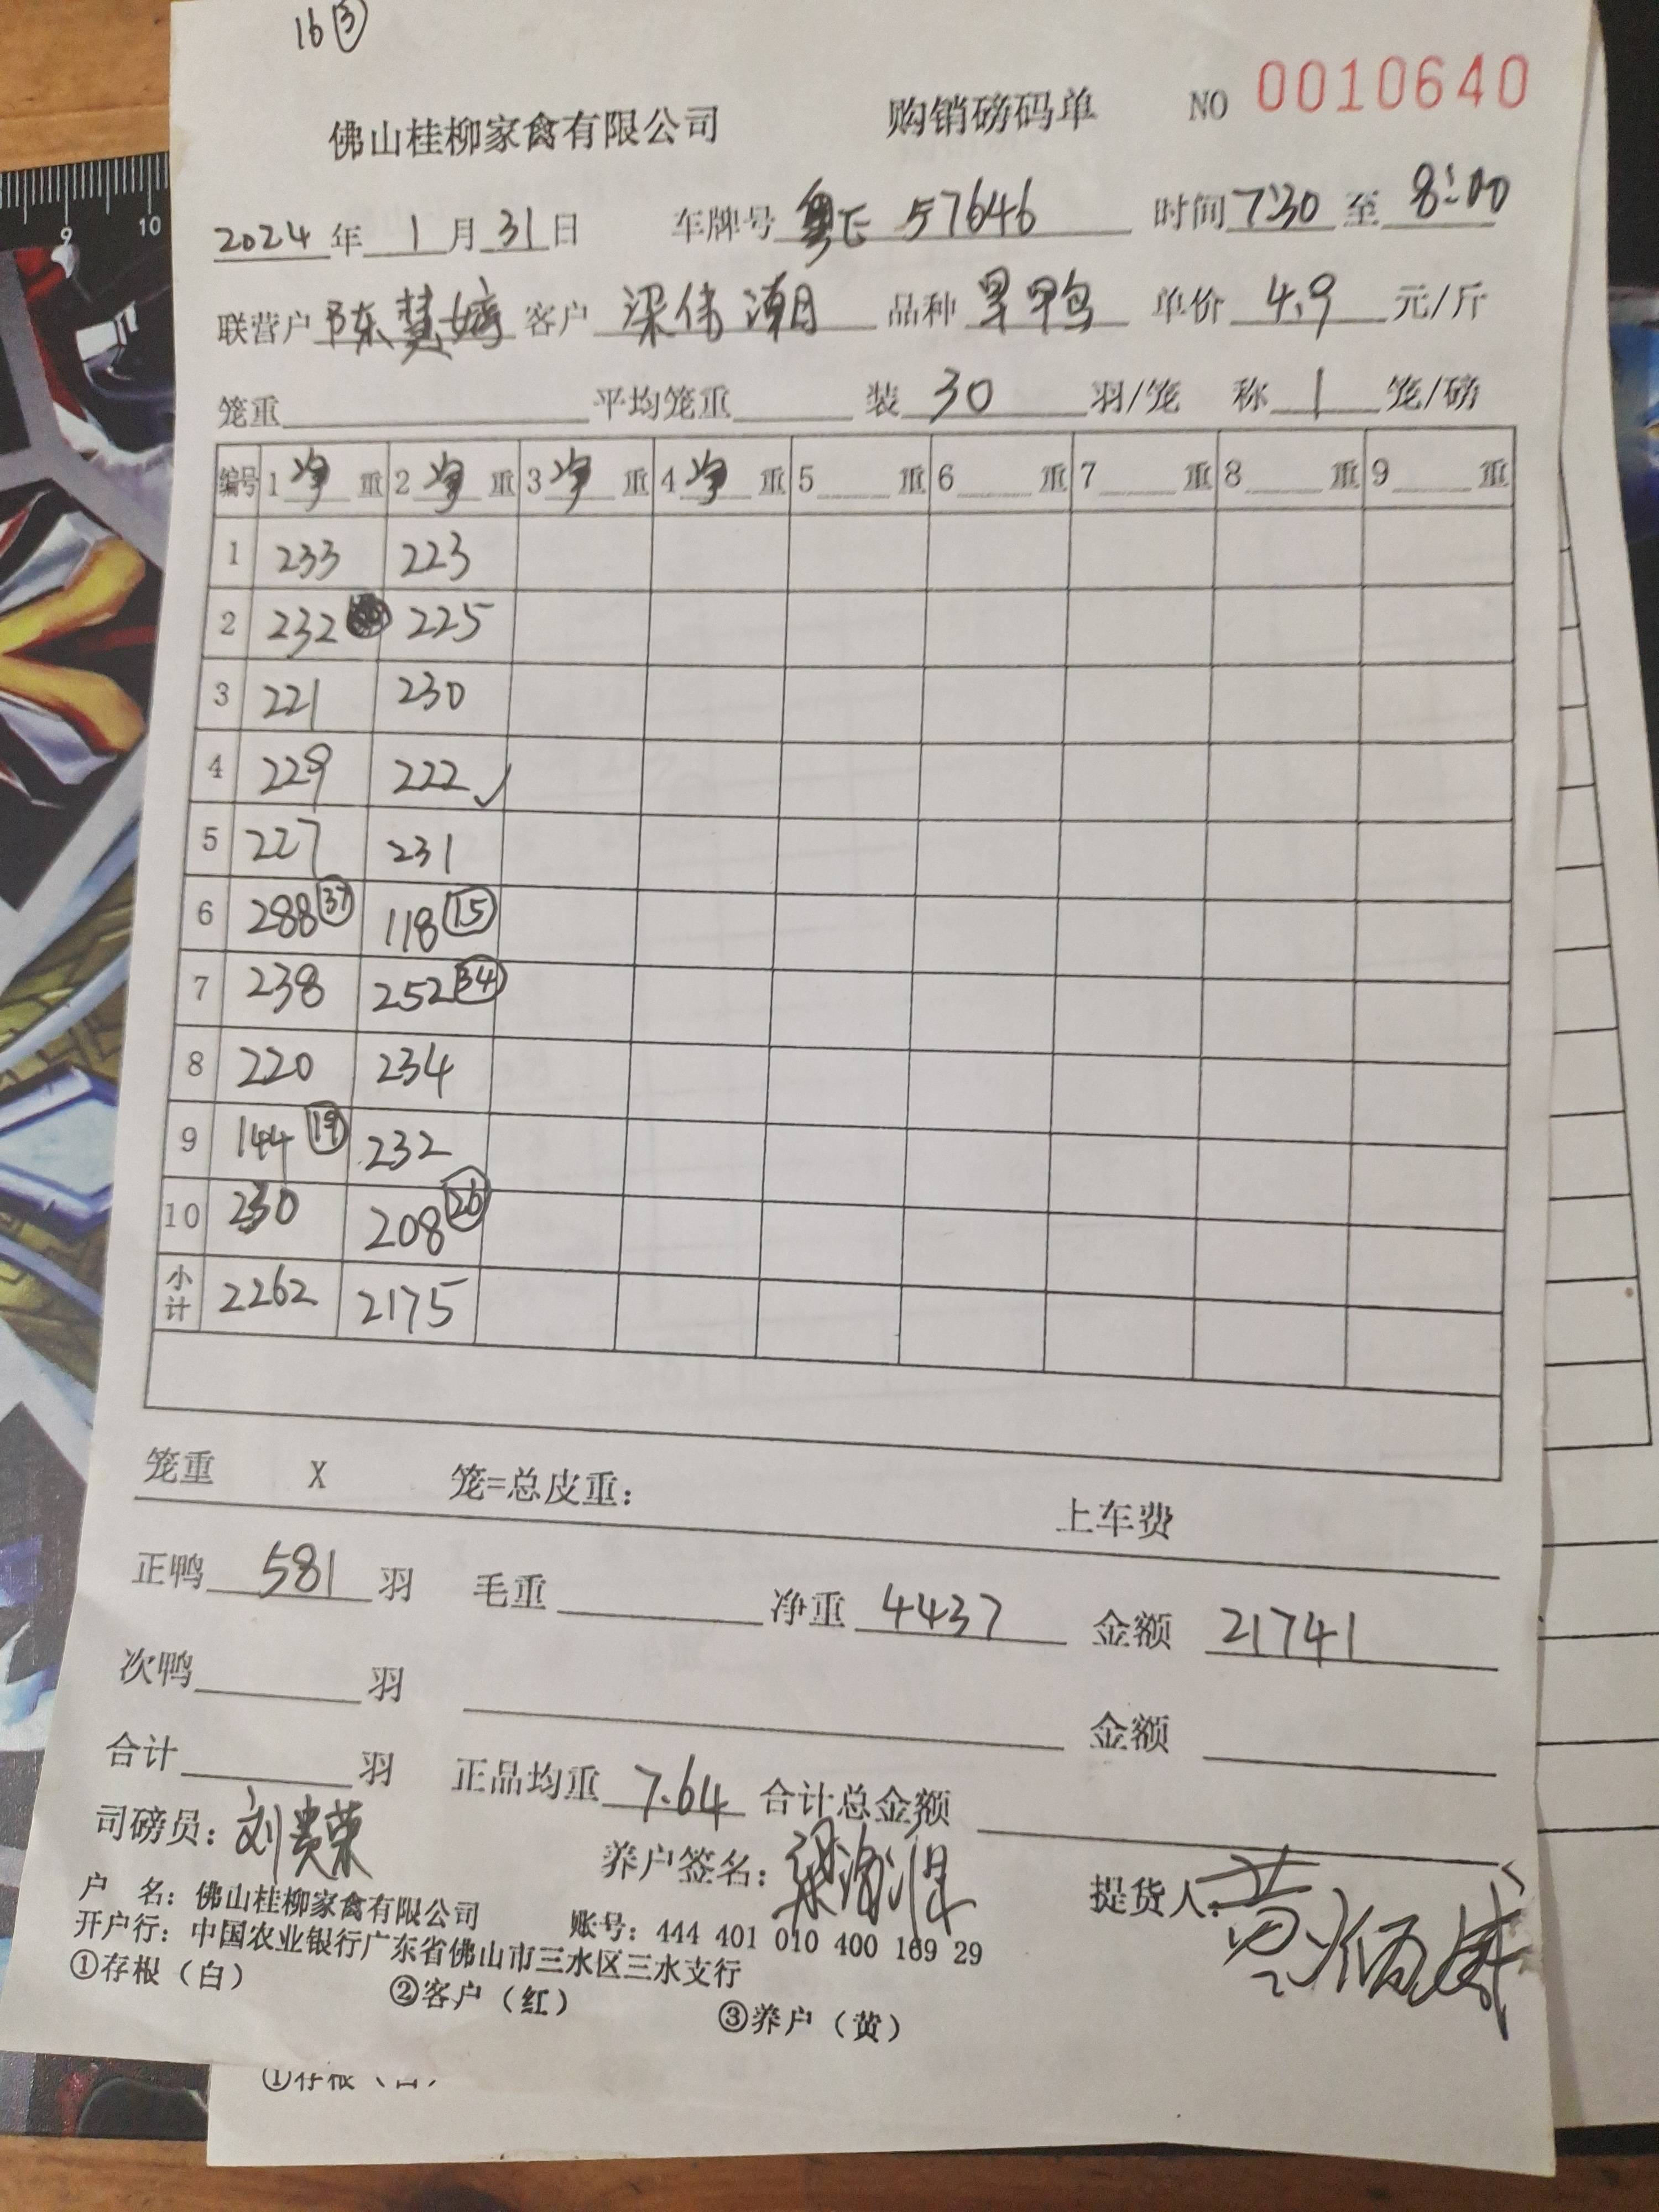 16 ③
佛山桂柳家禽有限公司 购销磅码单 NO 0010640
2024年 1月31日 车牌号 粤E 57646 时间 7:30 至 8:00
联营户 陈慧婷 客户 梁伟潮 品种 旱鸭 单价 4.9 元/斤
笼重 平均笼重 装 30 羽/笼 称 1 笼/磅
编号 1 净 重 2 净 重 3 净 重 4 净 重 5 重 6 重 7 重 8 重 9 重
1 233 223
2 232 225
3 221 230
4 229 222 ✓
5 227 231
6 288 ㊲ 118 ⑮
7 238 252 ㉞
8 220 234
9 144 ⑲ 232
10 230 208 ㉖
小计 2262 2175
笼重 X 笼=总皮重: 上车费
正鸭 581 羽 毛重 净重 4437 金额 21741
次鸭 羽 金额
合计 羽 正品均重 7.64 合计总金额
司磅员: 刘贵荣 养户签名: 提货人:
户 名: 佛山桂柳家禽有限公司 账号: 444 401 010 400 169 29
开户行: 中国农业银行广东省佛山市三水区三水支行
①存根（白） ②客户（红） ③养户（黄）